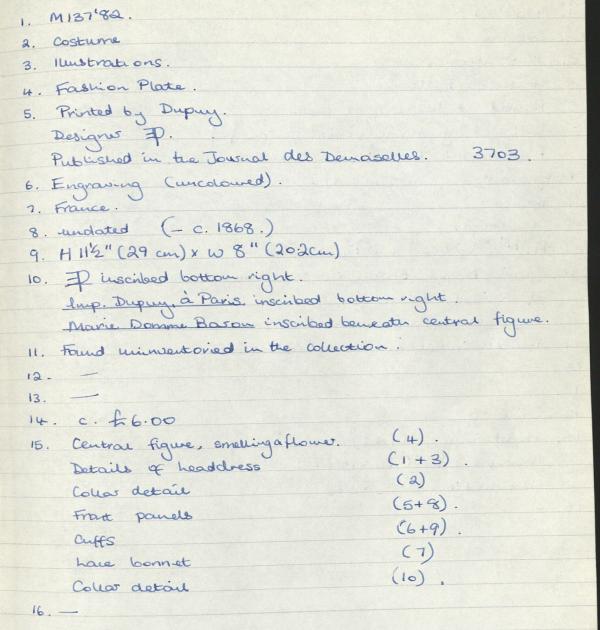 1. M137'82.
2. Costume
3. Illustrations.
4. Fashion Plate.
5. Printed by Dupuy.
Designer JP.
Published in the Journal des Demaselles. 3703.
6. Engraving (uncoloured).
7. France.
8. undated (– c. 1868.)
9. H 11½" (29 cm) x W 8" (20.2cm)
10. JP inscribed bottom right.
Imp. Dupuy, à Paris inscribed bottom right.
Marie Domme Baron inscribed beneath central figure.
11. Found uninventoried in the collection.
12. —
13. —
14. c. £6.00
15. Central figure, smelling a flower. (4).
Details of headdress (1+3).
Collar detail (2)
Front panels (5+8).
Cuffs (6+9).
Lace bonnet (7)
Collar detail (10).
16. —